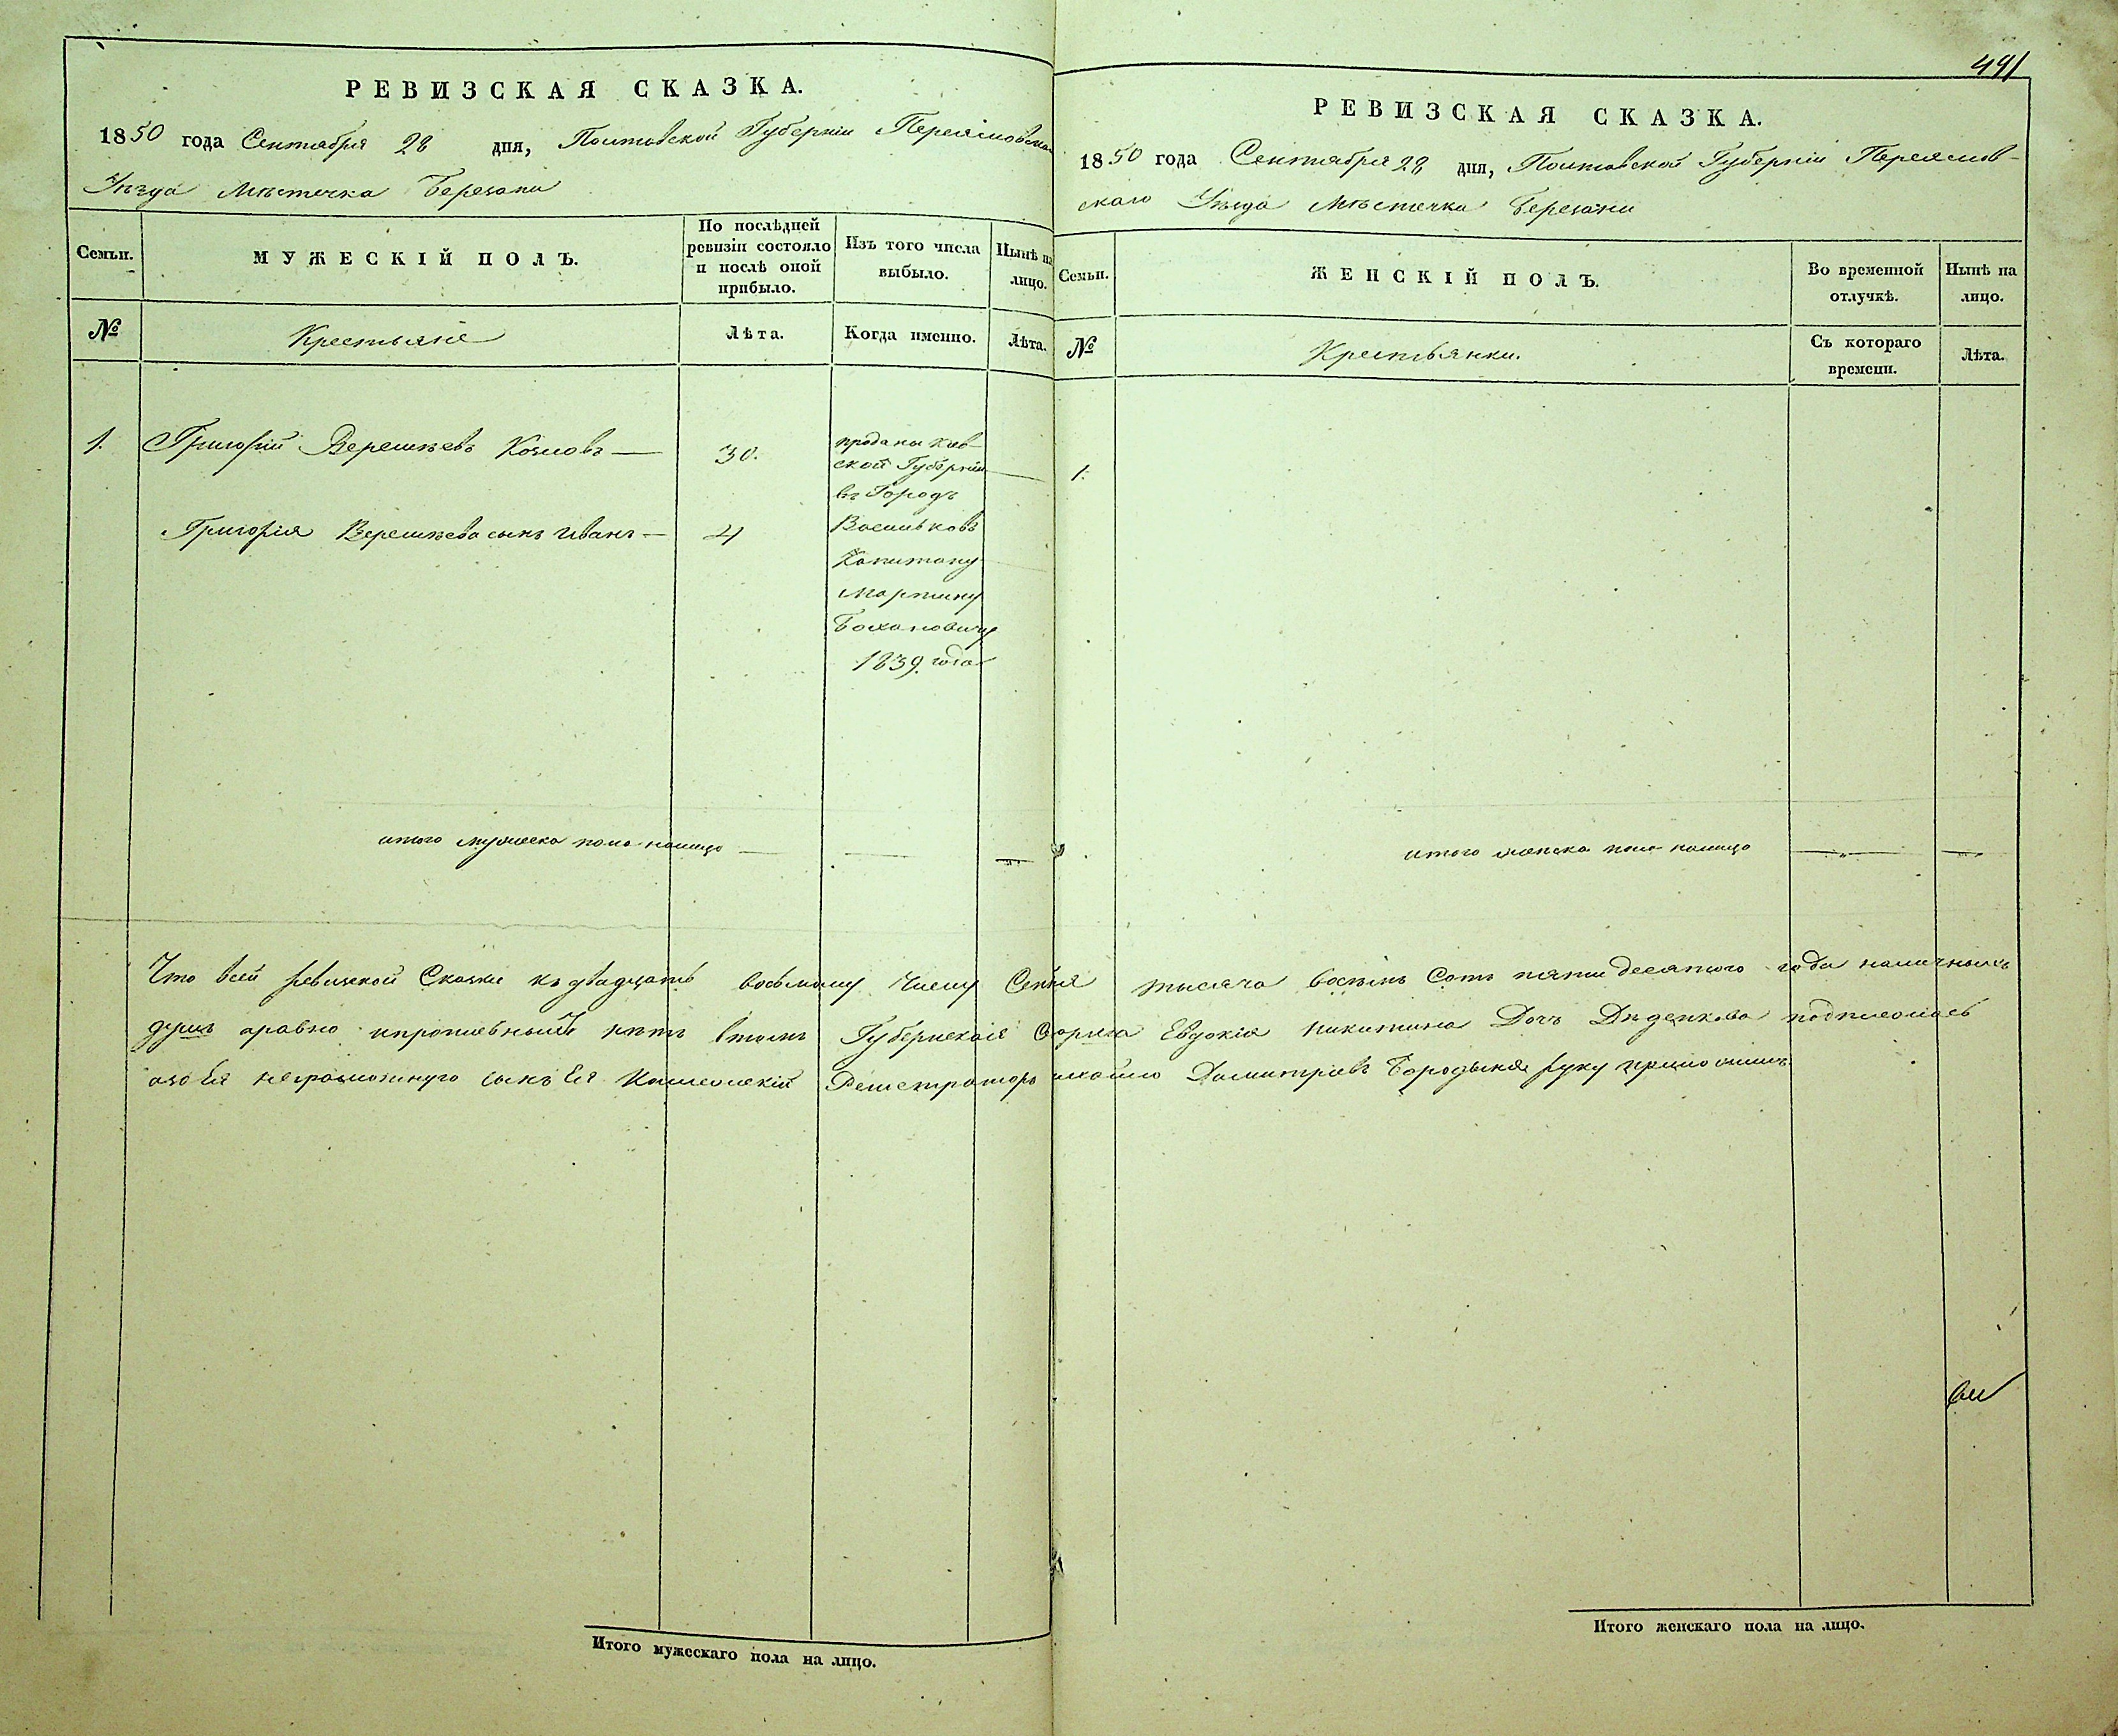 491
РЕВИЗСКАЯ СКАЗКА.
1850 года Сентября 28 дня, Полтавской Губерніи Переяслов
Уѣзда Мѣстечка Березани
Семьи.
МУЖЕСКІЙ ПОЛЪ.
По послѣдней
ревизіи состояло
и послѣ оной
прибыло.
Изъ того числа
выбыло.
Нынѣ на
лицо.
№
Крестьяне
Лѣта.
Когда именно.
Лѣта.
1. Григорій Козловъ — 30.
Григорія сынъ Иванъ — 4
проданы Кіев-
ской Губерніи
въ Городъ
Васильковъ
Капитану
Мартину
1839. года
итого мужеска пола налицо
РЕВИЗСКАЯ СКАЗКА.
1850 года Сентября 28 дня, Полтавской Губерніи Переяслов-
скаго Уѣзда Мѣстечка Березани
Семьи.
ЖЕНСКІЙ ПОЛЪ.
Во временной
отлучкѣ.
Нынѣ на
лицо.
№
Крестьянки.
Съ котораго
времени.
Лѣта.
1.
итого женска пола налицо
Что всей ревизской Сказки къ двадцать восьмому Числу тысяча восемь Сотъ пятидесятого года наличныхъ
душъ аравно нѣтъ втомъ Евдокія Никитина Дочь подписалась
азо Ея неграмотную сынъ Ея Регистраторъ Дмитріевъ руку приложилъ
Итого мужескаго пола на лицо.
Итого женскаго пола на лицо.